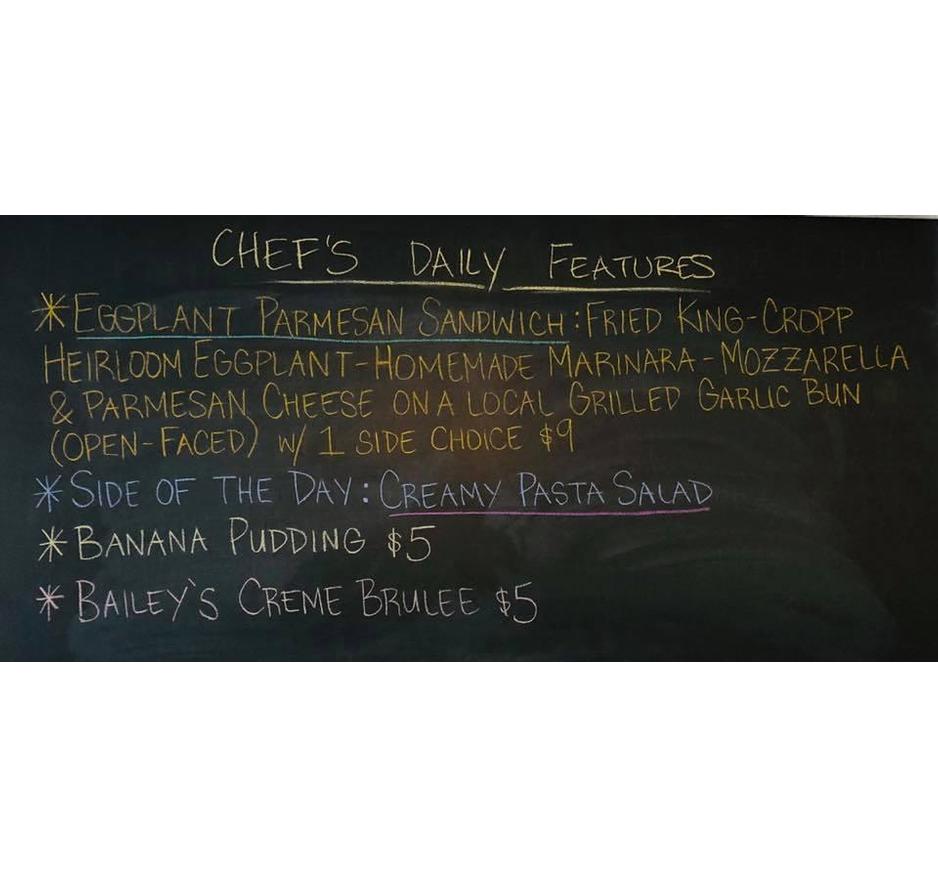 CHEF'S DAILY FEATURES
*EGGPLANT PARMESAN SANDWICH: FRIED KING-CROPP
HEIRLOOM EGGPLANT-HOMEMADE MARINARA-MOZZARELLA
& PARMESAN CHEESE ON A LOCAL GRILLED GARLIC BUN
(OPEN-FACED) W/ 1 SIDE CHOICE $9
*SIDE OF THE DAY: CREAMY PASTA SALAD
*BANANA PUDDING $5
*BAILEY'S CREME BRULEE $5